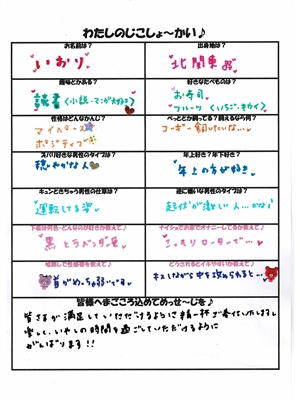 わたしのじこしょ～かい♪
お名前は？
いおり
出身地は？
北関東
趣味とかある？
読書（小説・マンガ大好き♡）
好きなたべものは？
お寿司
フルーツ（いちご・キウイ）
性格はどんなかんじ？
マイペース
ポジティブ
ペットとか飼ってる？飼えるなら何？
コーギー飼いたいな…
ズバリ好きな男性のタイプは？
穏やかな人
年上好き？年下好き？
年上の方が好き
キュンときちゃう男性の仕草は？
運転してる姿
逆に嫌いな男性のタイプは？
起伏が激しい人…かな
下着は何色・どんなのが好きか教えて♪
黒とラベンダー色
ナイショでお家でオナニーしてるか教えて♪
こっそりローターで…
恥ずかしくて性感帯を教えて♪
首がめっちゃ弱いです
どうされるとイキやすいか教えて♪
キスしながら中を攻められると…
皆様へまごころ込めてめっせ～じを♪
皆さまが満足していただけるように精一杯ご奉仕いたします
楽しく、いやしの時間を過ごしていただけるように
がんばります!!